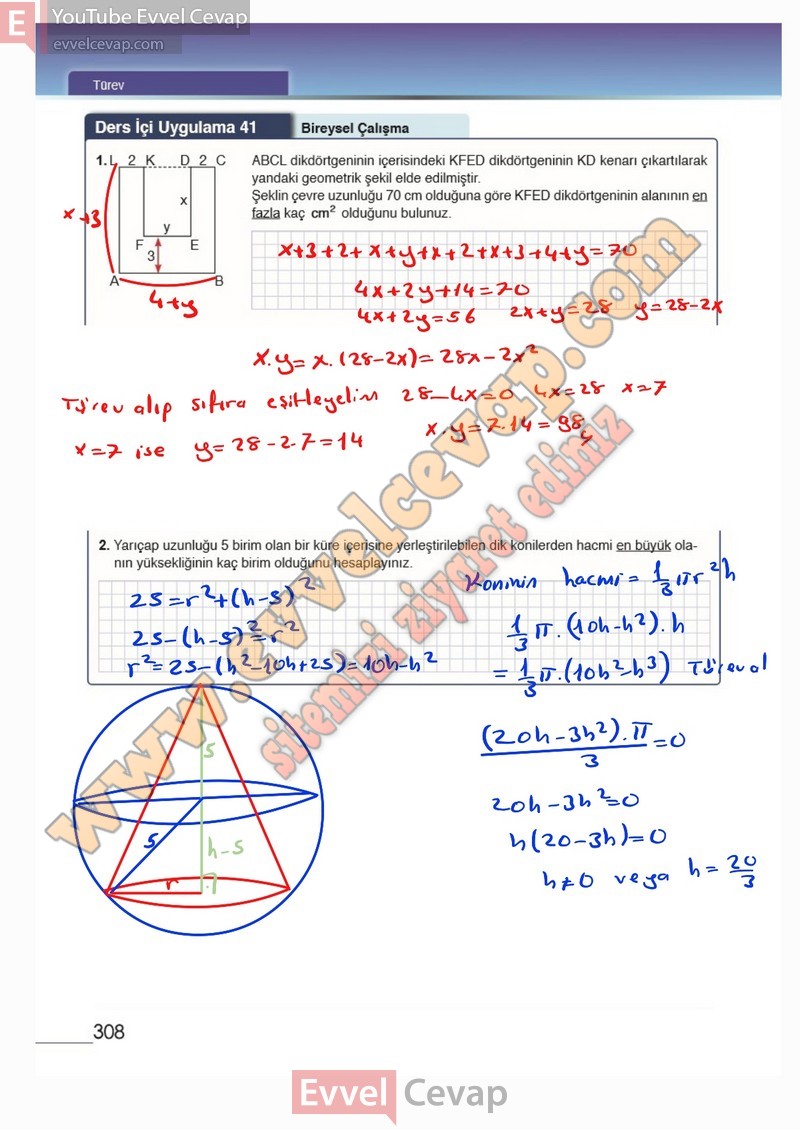 E YouTube Evvel Cevap
evvelcevap.com
Türev
Ders İçi Uygulama 41 Bireysel Çalışma
1. L 2 K D 2 C
x
y
F E
3
A B
x+3
4+y
ABCL dikdörtgeninin içerisindeki KFED dikdörtgeninin KD kenarı çıkartılarak
yandaki geometrik şekil elde edilmiştir.
Şeklin çevre uzunluğu 70 cm olduğuna göre KFED dikdörtgeninin alanının en
fazla kaç cm² olduğunu bulunuz.
x+3+2+x+y+x+2+x+3+4+y=70
4x+2y+14=70
4x+2y=56 2x+y=28 y=28-2x
x.y=x.(28-2x)=28x-2x²
Türev alıp sıfıra eşitleyelim 28-4x=0 4x=28 x=7
x=7 ise y=28-2.7=14 x.y=7.14=98
www.evvelcevap.com
sitemizi ziyaret ediniz
2. Yarıçap uzunluğu 5 birim olan bir küre içerisine yerleştirilebilen dik konilerden hacmi en büyük ola-
nın yüksekliğinin kaç birim olduğunu hesaplayınız.
25=r²+(h-5)²
25-(h-5)²=r²
r²=25-(h²-10h+25)=10h-h²
Koninin hacmi=1/3πr²h
1/3π.(10h-h²).h
=1/3π.(10h²-h³) Türev al
(20h-3h²).π/3=0
20h-3h²=0
h(20-3h)=0
h≠0 veya h=20/3
5
5
h-5
r
308
Evvel Cevap